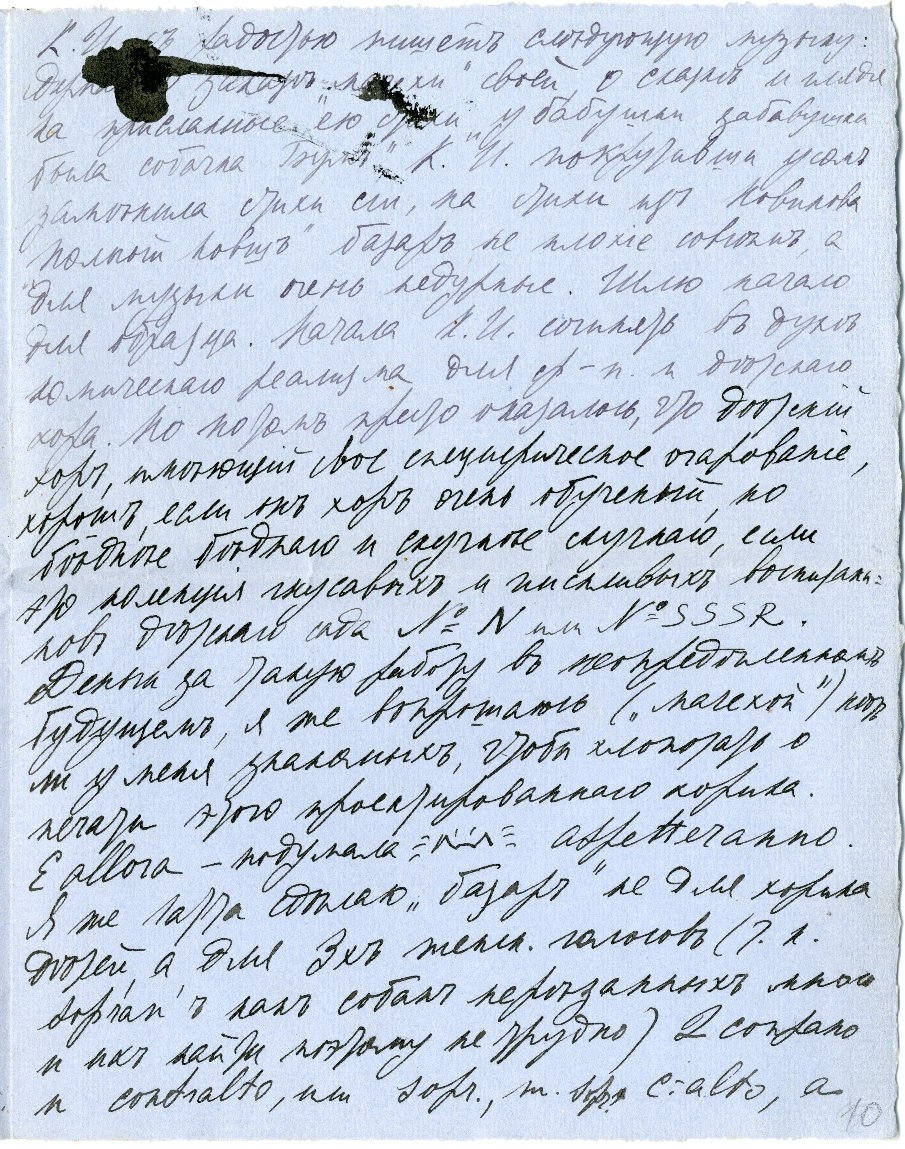 К. И. съ радостью пишетъ слѣдующую музыку:
заказъ „мачехи" своей, о сказкѣ и глядя
на присланные ею стихи „у бабушки забавушки
была собачка Бумъ" К. И. покрутивши усомъ
замѣнила стихи сіи, на стихи изъ Новикова
„полный ковшъ" базаръ не плохіе совсѣмъ, а
для музыки очень недурные. Шлю начало
для образца. Начала К. И. сочинять въ духѣ
комическаго реализма для ф-п. и дѣтскаго
хора. Но потомъ просто оказалось, что дѣтскій
хоръ, имѣющій свое специфическое очарованіе,
хорошъ, если онъ хоръ очень обученый, но
бѣднѣе бѣднаго и скучнѣе скучнаго, если
это колекція гнусавыхъ и писклявыхъ воспитани=
ковъ дѣтскаго сада № N или № SSSR.
Деньги за такую работу въ неопредѣленномъ
будущемъ, я же вопрошаюсь („мачехой") нѣтъ
ли у меня знакомыхъ, чтобы хлопотать о
печати этого проектированнаго хорика.
E allora – подумала aspetteranno.
Я же тогда сдѣлаю „базаръ" не для хорика
дѣтей, а для 3хъ женск. голосовъ (т. к.
sopran'ъ какъ собакъ нерѣзанныхъ много
и ихъ найти поэтому не трудно) 2 сопрано
и contralto, или sopr., m. sopr. c=alto, а
10